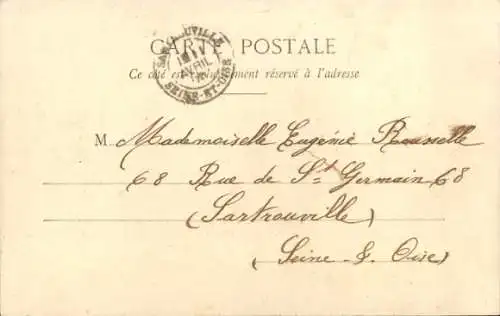 CARTE POSTALE
Ce côté est exclusivement réservé à l'adresse
SARTROUVILLE
AVRIL
SEINE-ET-OISE
M. Mademoiselle Eugénie Rousselle
68 Rue de St Germain 68
(Sartrouville)
(Seine & Oise)